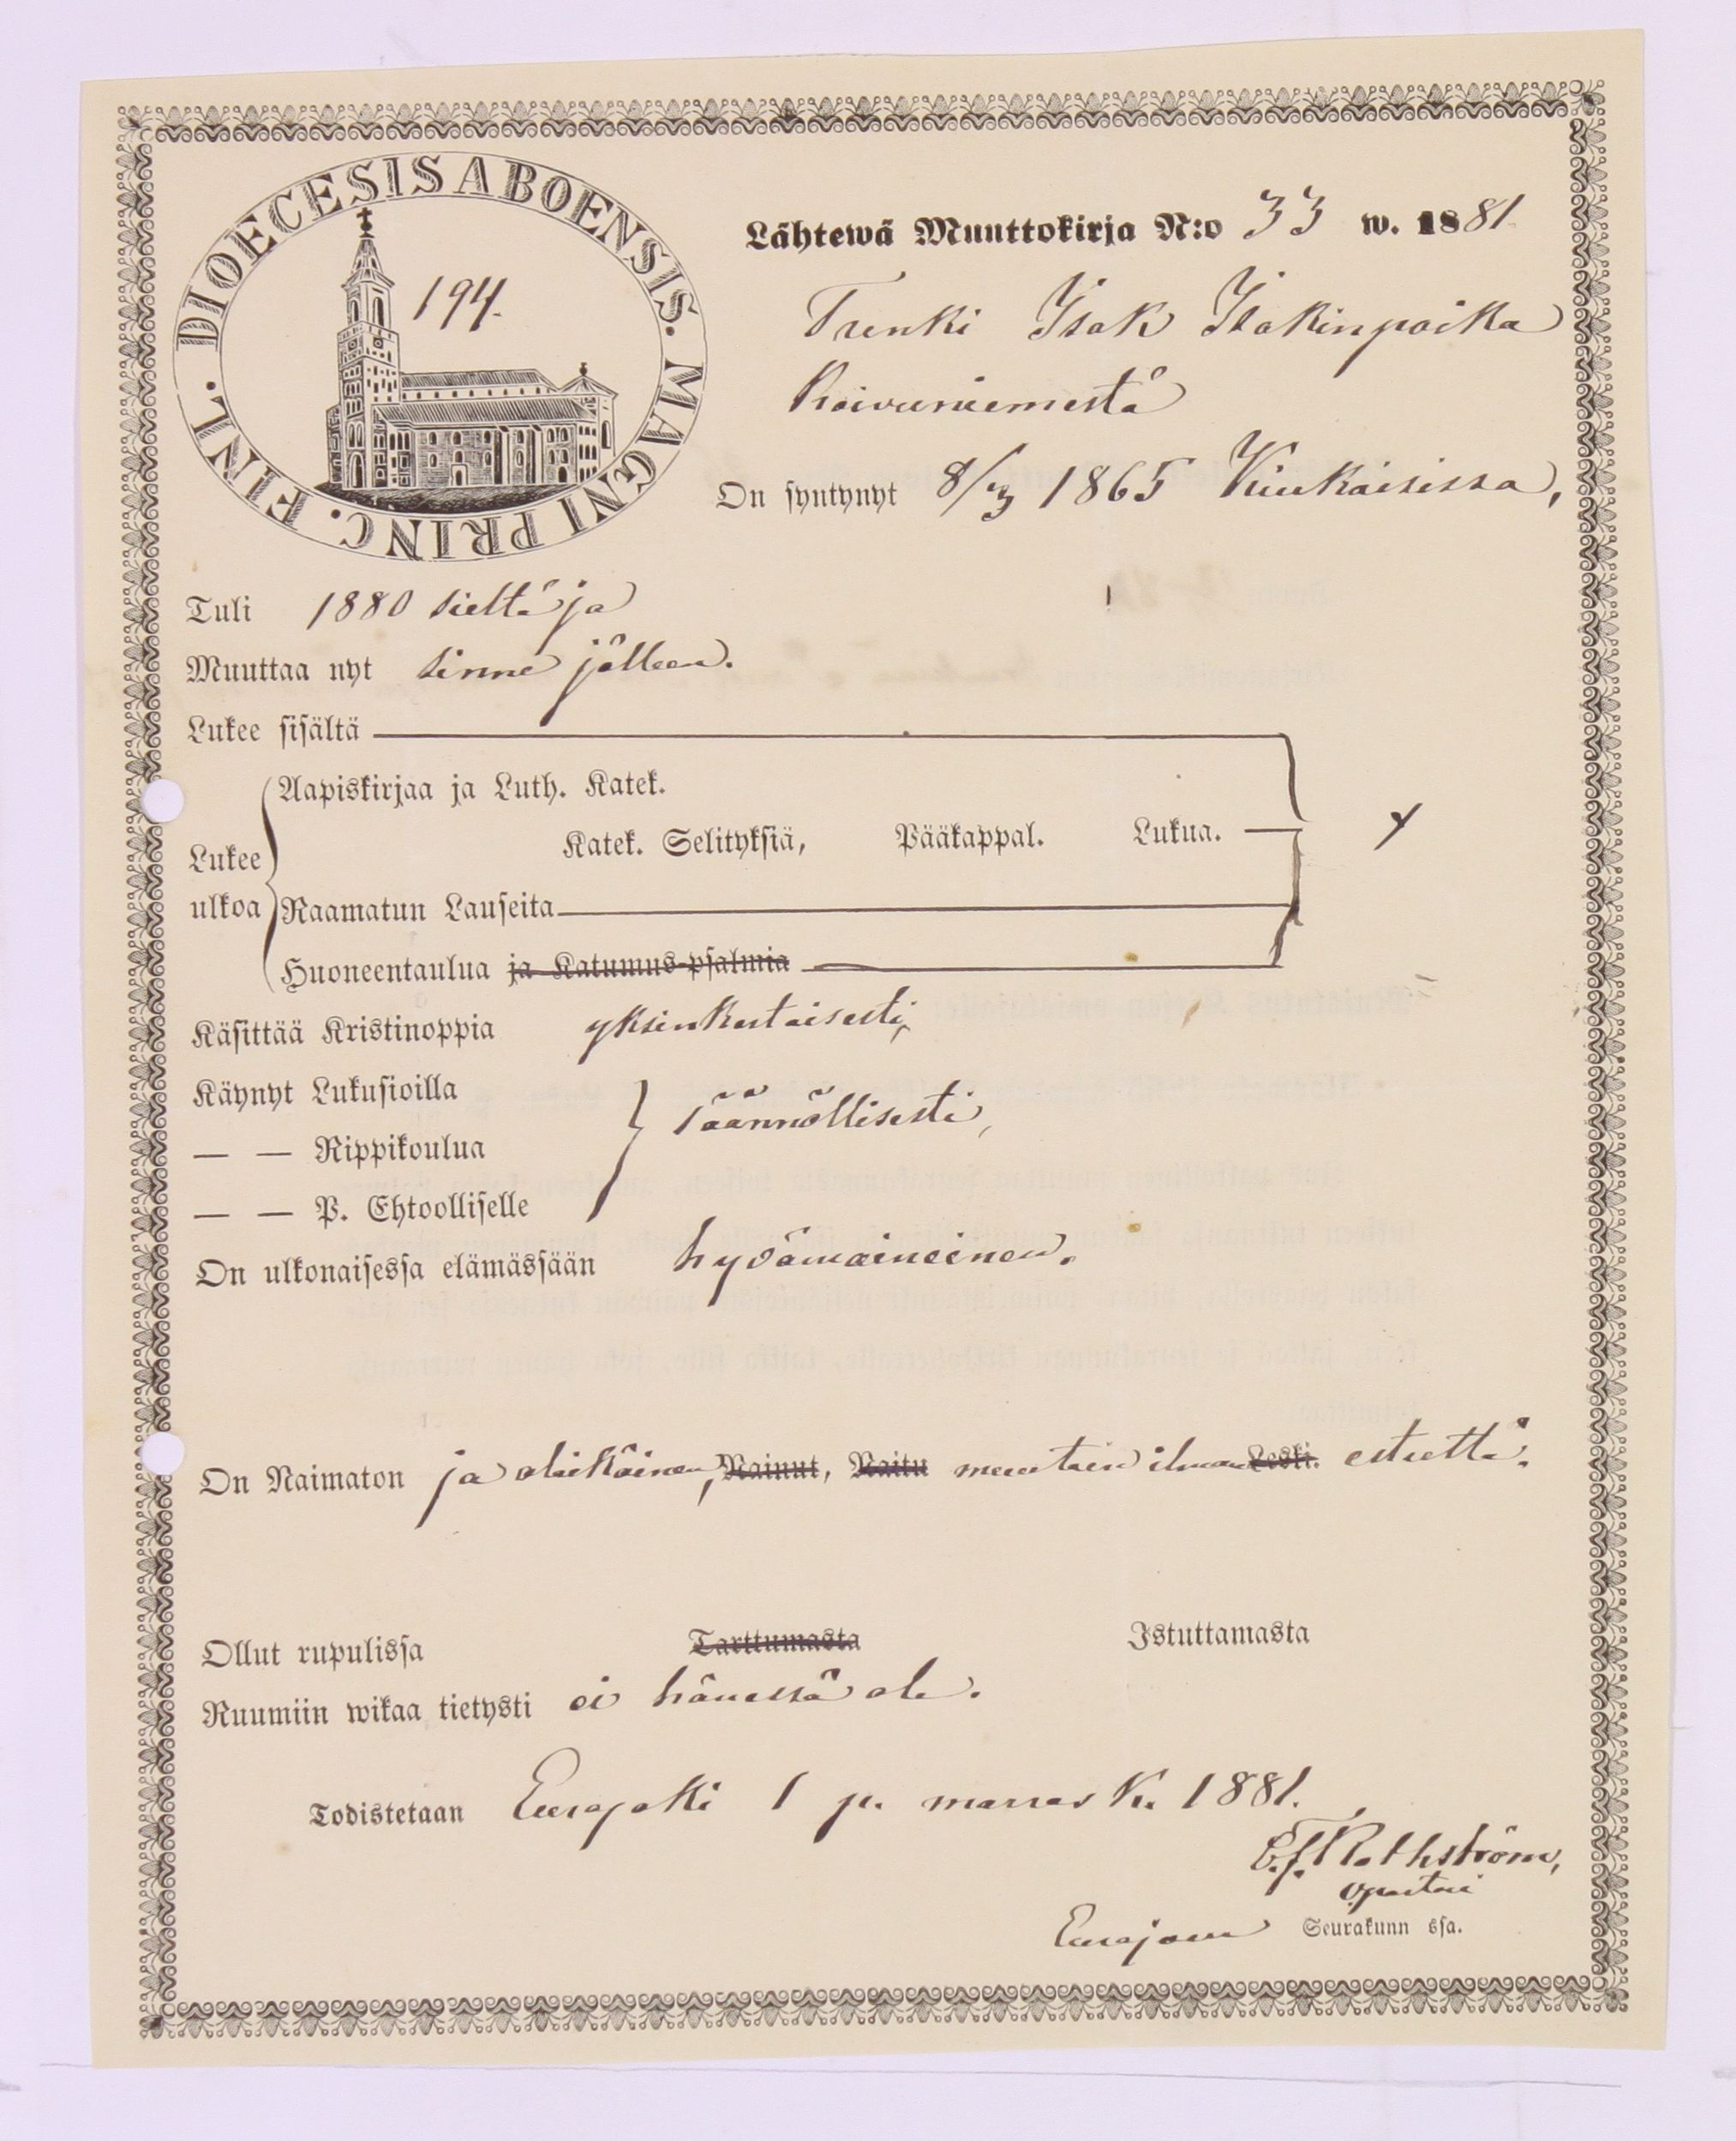 DIOECESIS ABOENSIS. MAGNI PRINC. FINL.
194.
Lähtewä Muuttokirja N:o 33 w. 1881
Trenki Isak Isakinpoika
Koivuniemestä
On syntynyt 8/3 1865 Kiukaisissa,
Tuli 1880 sieltä ja
Muuttaa nyt sinne jälleen.
Lukee sisältä
Aapiskirjaa ja Luth. Katek.
Katek. Selityksiä, Pääkappal. Lukua.
Lukee
ulkoa
Raamatun Lauseita
Huoneentaulua ja Katumus-psalmia
Käsittää Kristinoppia yksinkertaisesti,
Käynyt Lukusioilla
— — Rippikoulua
säännöllisesti,
— — P. Ehtoolliselle
On ulkonaisessa elämässään hyvämaineinen.
On Naimaton ja alaikäinen, Nainut, Naitu muutoin ilman Leski. estettä.
Ollut rupulissa Tarttumasta Istuttamasta
Ruumiin wikaa tietysti ei hänessä ole.
Todistetaan Eurajoki 1 p. marrask. 1881.
E.f. Rothström,
Eurajoen Seurakunn ssa.